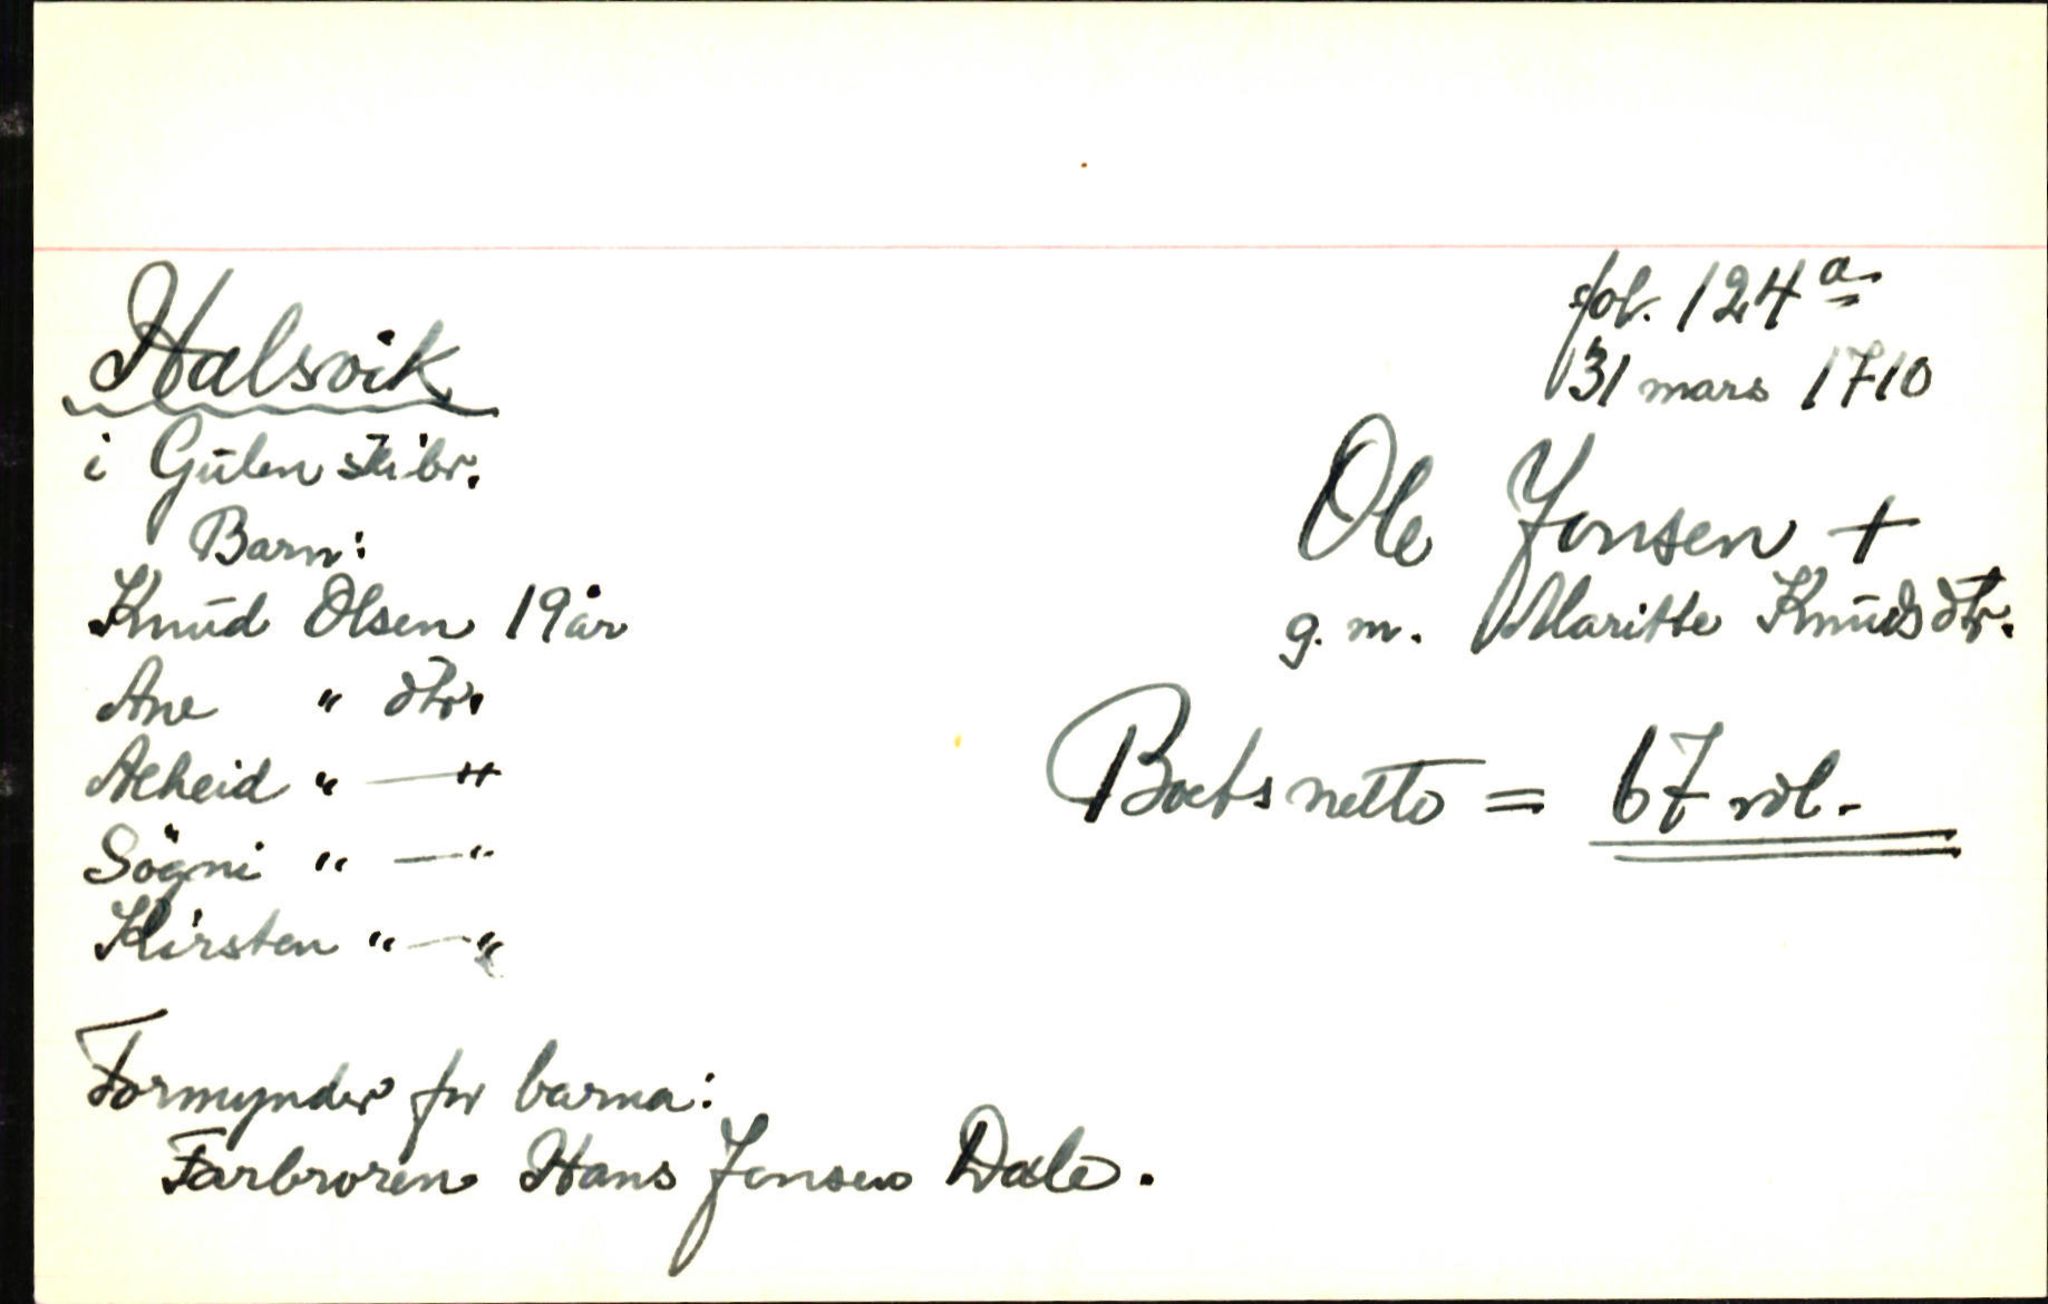 fol. 124 a
31 mars 1710
Halsvik
i Gulen skibr.
Ole Jonsen +
g. m. Maritte Knudsdtr.
Barn:
Knud Olsen 19 år
Ane " dtr.
Alheid " — "
Sögni " — "
Kirsten " — "
Boets netto = 67 rdl.
Formynder for barna:
Farbroren Hans Jonsen Dale.